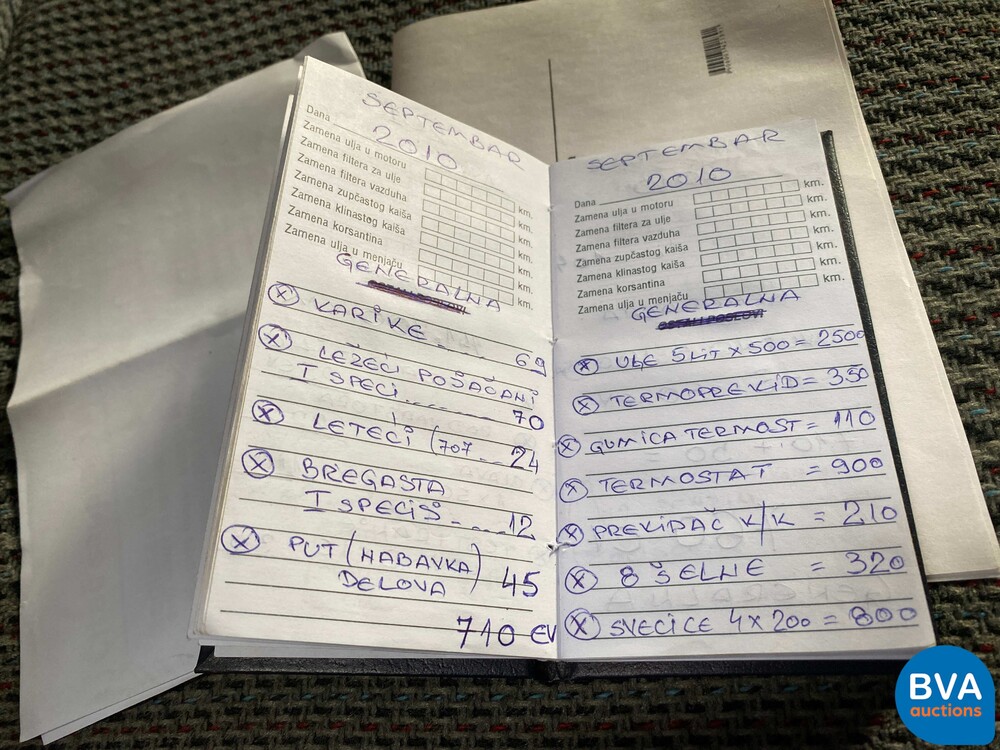 SEPTEMBAR
2010.
Dana
Zamena ulja u motoru km.
Zamena filtera za ulje km.
Zamena filtera vazduha km.
Zamena zupčastog kaiša km.
Zamena klinastog kaiša km.
Zamena korsantina km.
Zamena ulja u menjaču km.
GENERALNA
OSTALI POSLOVI
X KARIKE 69
X LEŽEĆI POSAČANI
I SPECI........ 70
X LETEĆI (707... 24
X BREGASTA
I SPECIŠ.... 12
X PUT (NABAVKA)
DELOVA 45
710 EV
SEPTEMBAR
2010
Dana
Zamena ulja u motoru km.
Zamena filtera za ulje km.
Zamena filtera vazduha km.
Zamena zupčastog kaiša km.
Zamena klinastog kaiša km.
Zamena korsantina km.
Zamena ulja u menjaču km.
GENERALNA
OSTALI POSLOVI
X ULE 5 LIT X 500 = 2500
X TERMOPREKID = 350
X GUMICA TERMOST = 110
X TERMOSTAT = 900
X PREKIDAČ K/K = 210
X 8 ŠELNE = 320
X SVEĆICE 4 X 200 = 800
BVA
auctions